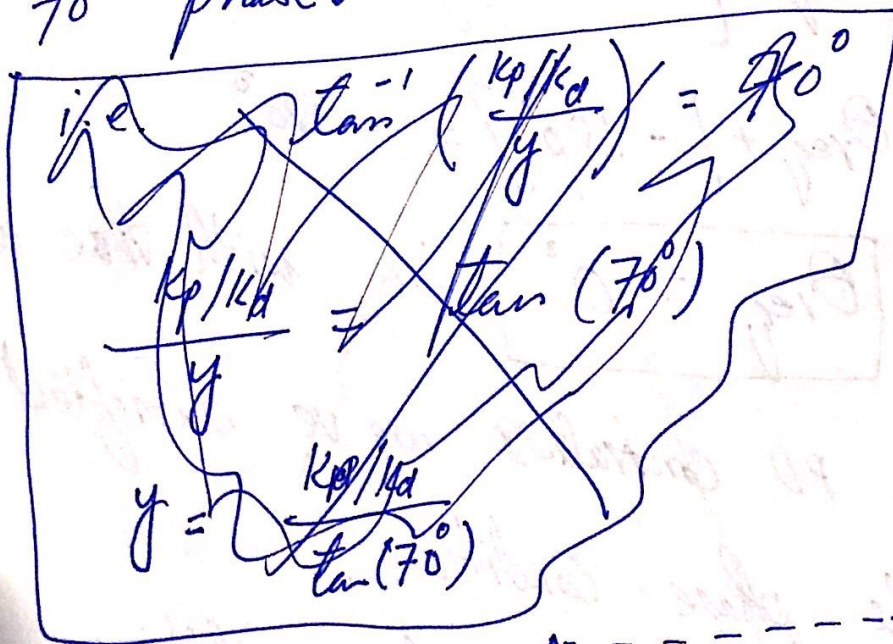 70° phase.
i.e. tan⁻¹ ( (Kp/Kd) / y ) = 70°
(Kp/Kd) / y = tan (70°)
y = (Kp/Kd) / tan(70°)